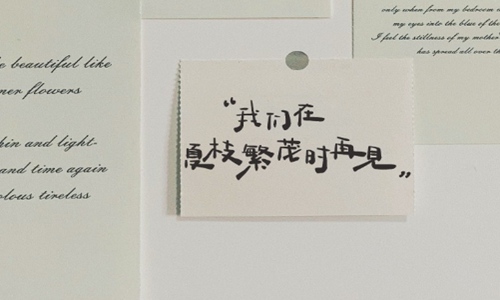 beautiful like
flowers
and light-
and time again
tireless
only when from my bedroom
my eyes into the blue of the
I feel the stillness of my mother
has spread all over
“我们在
夏枝繁茂时再見”